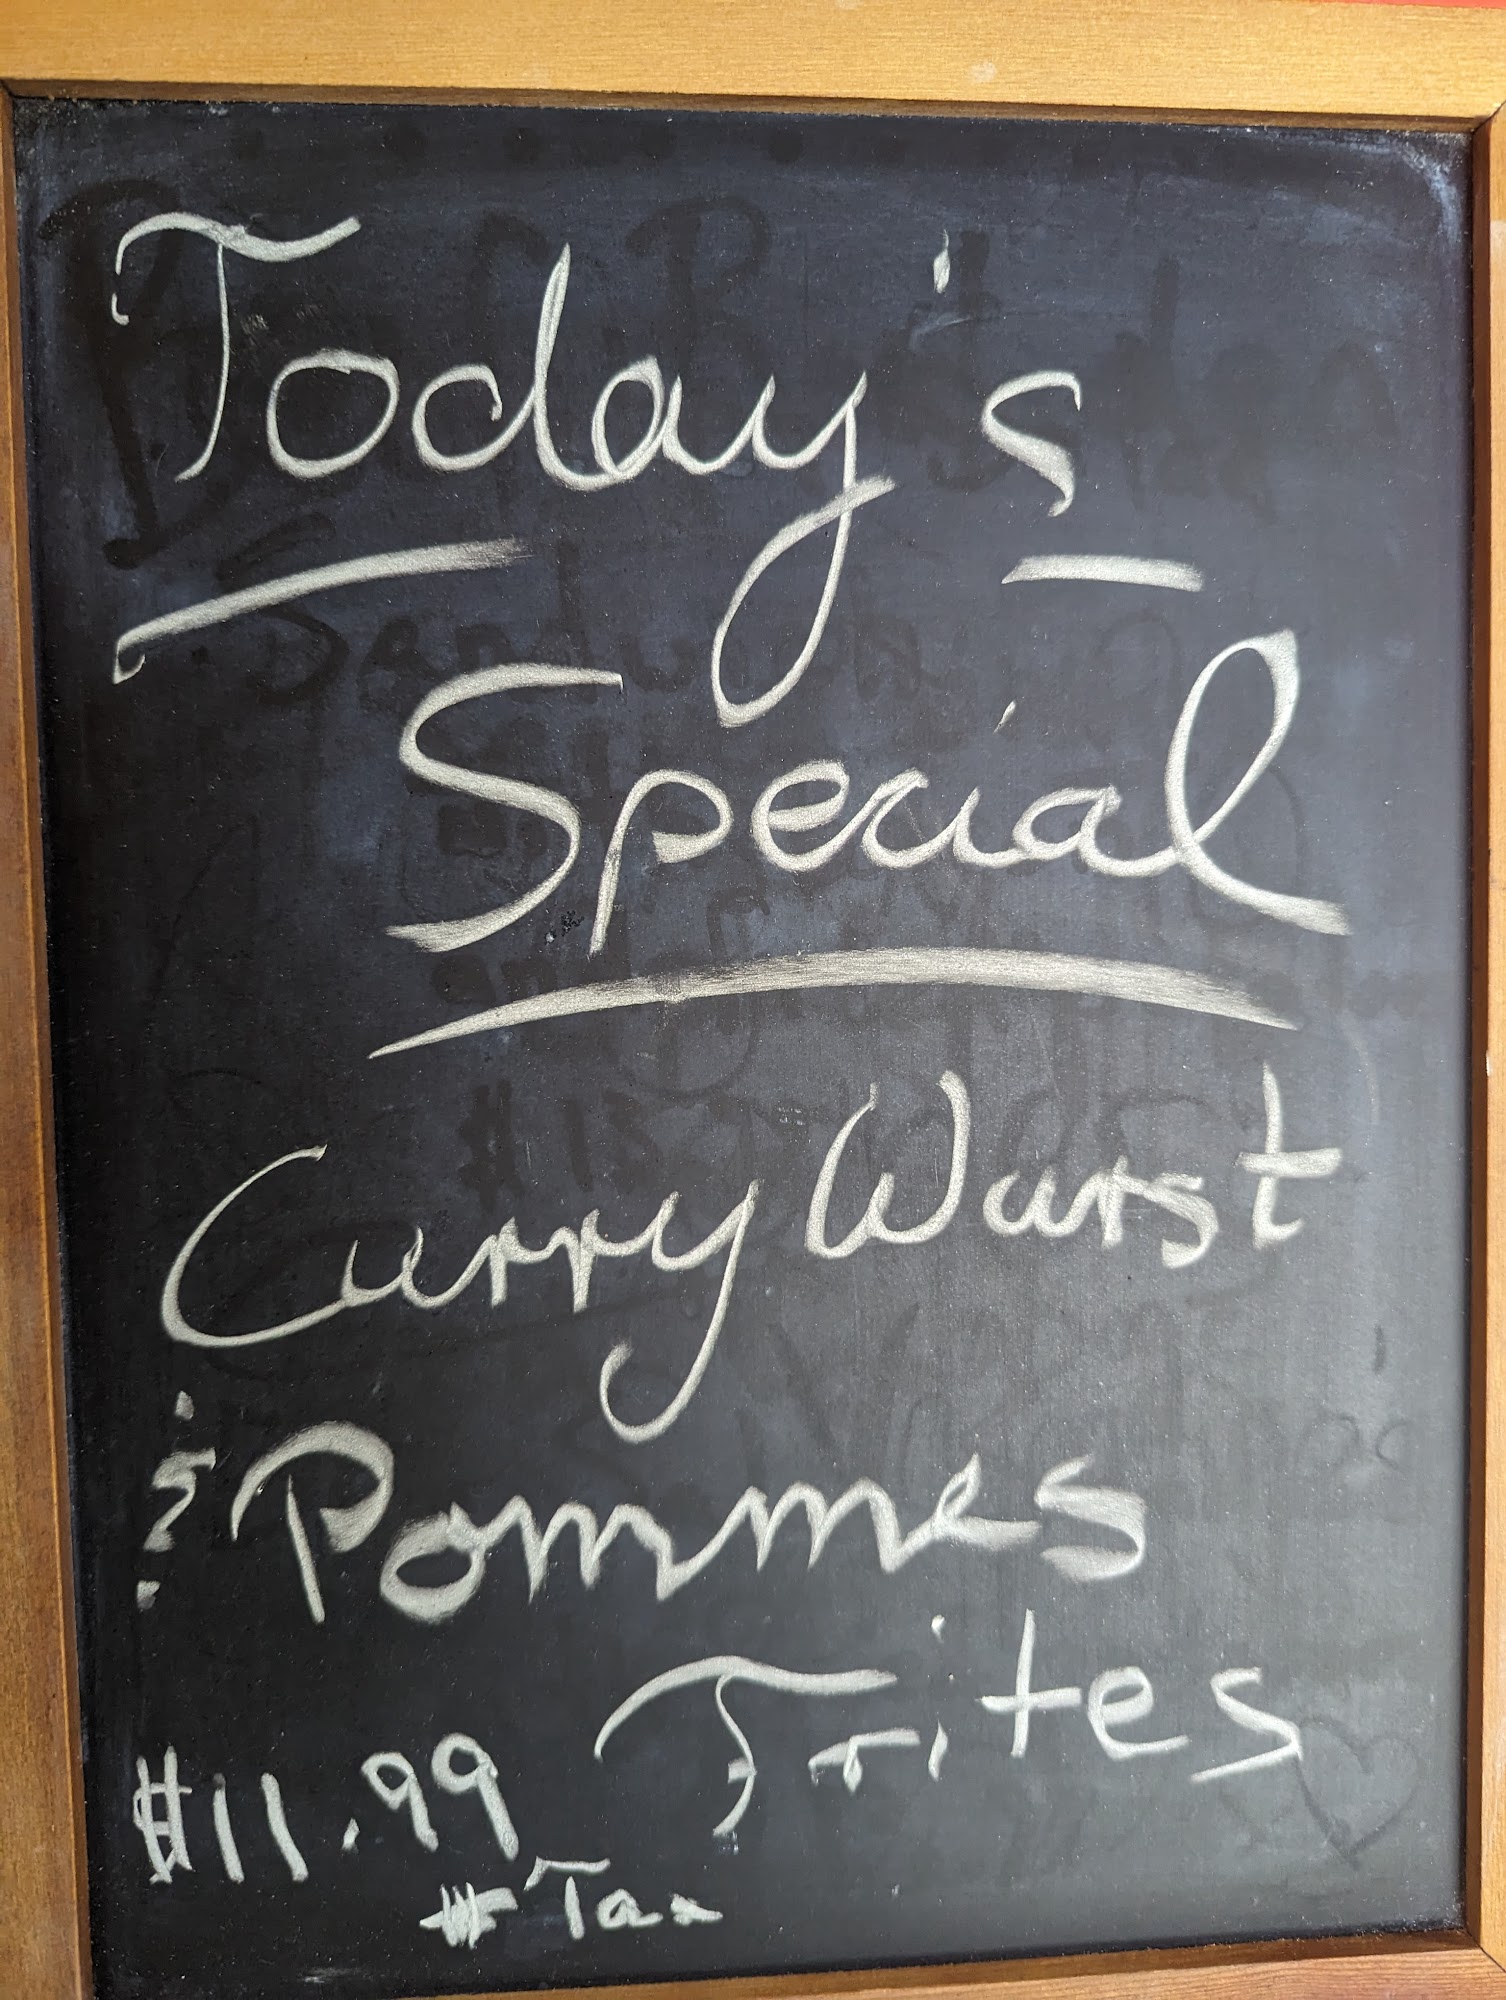 Today's
Special
Curry Wurst
& Pommes
Frites
$11.99
+ Tax